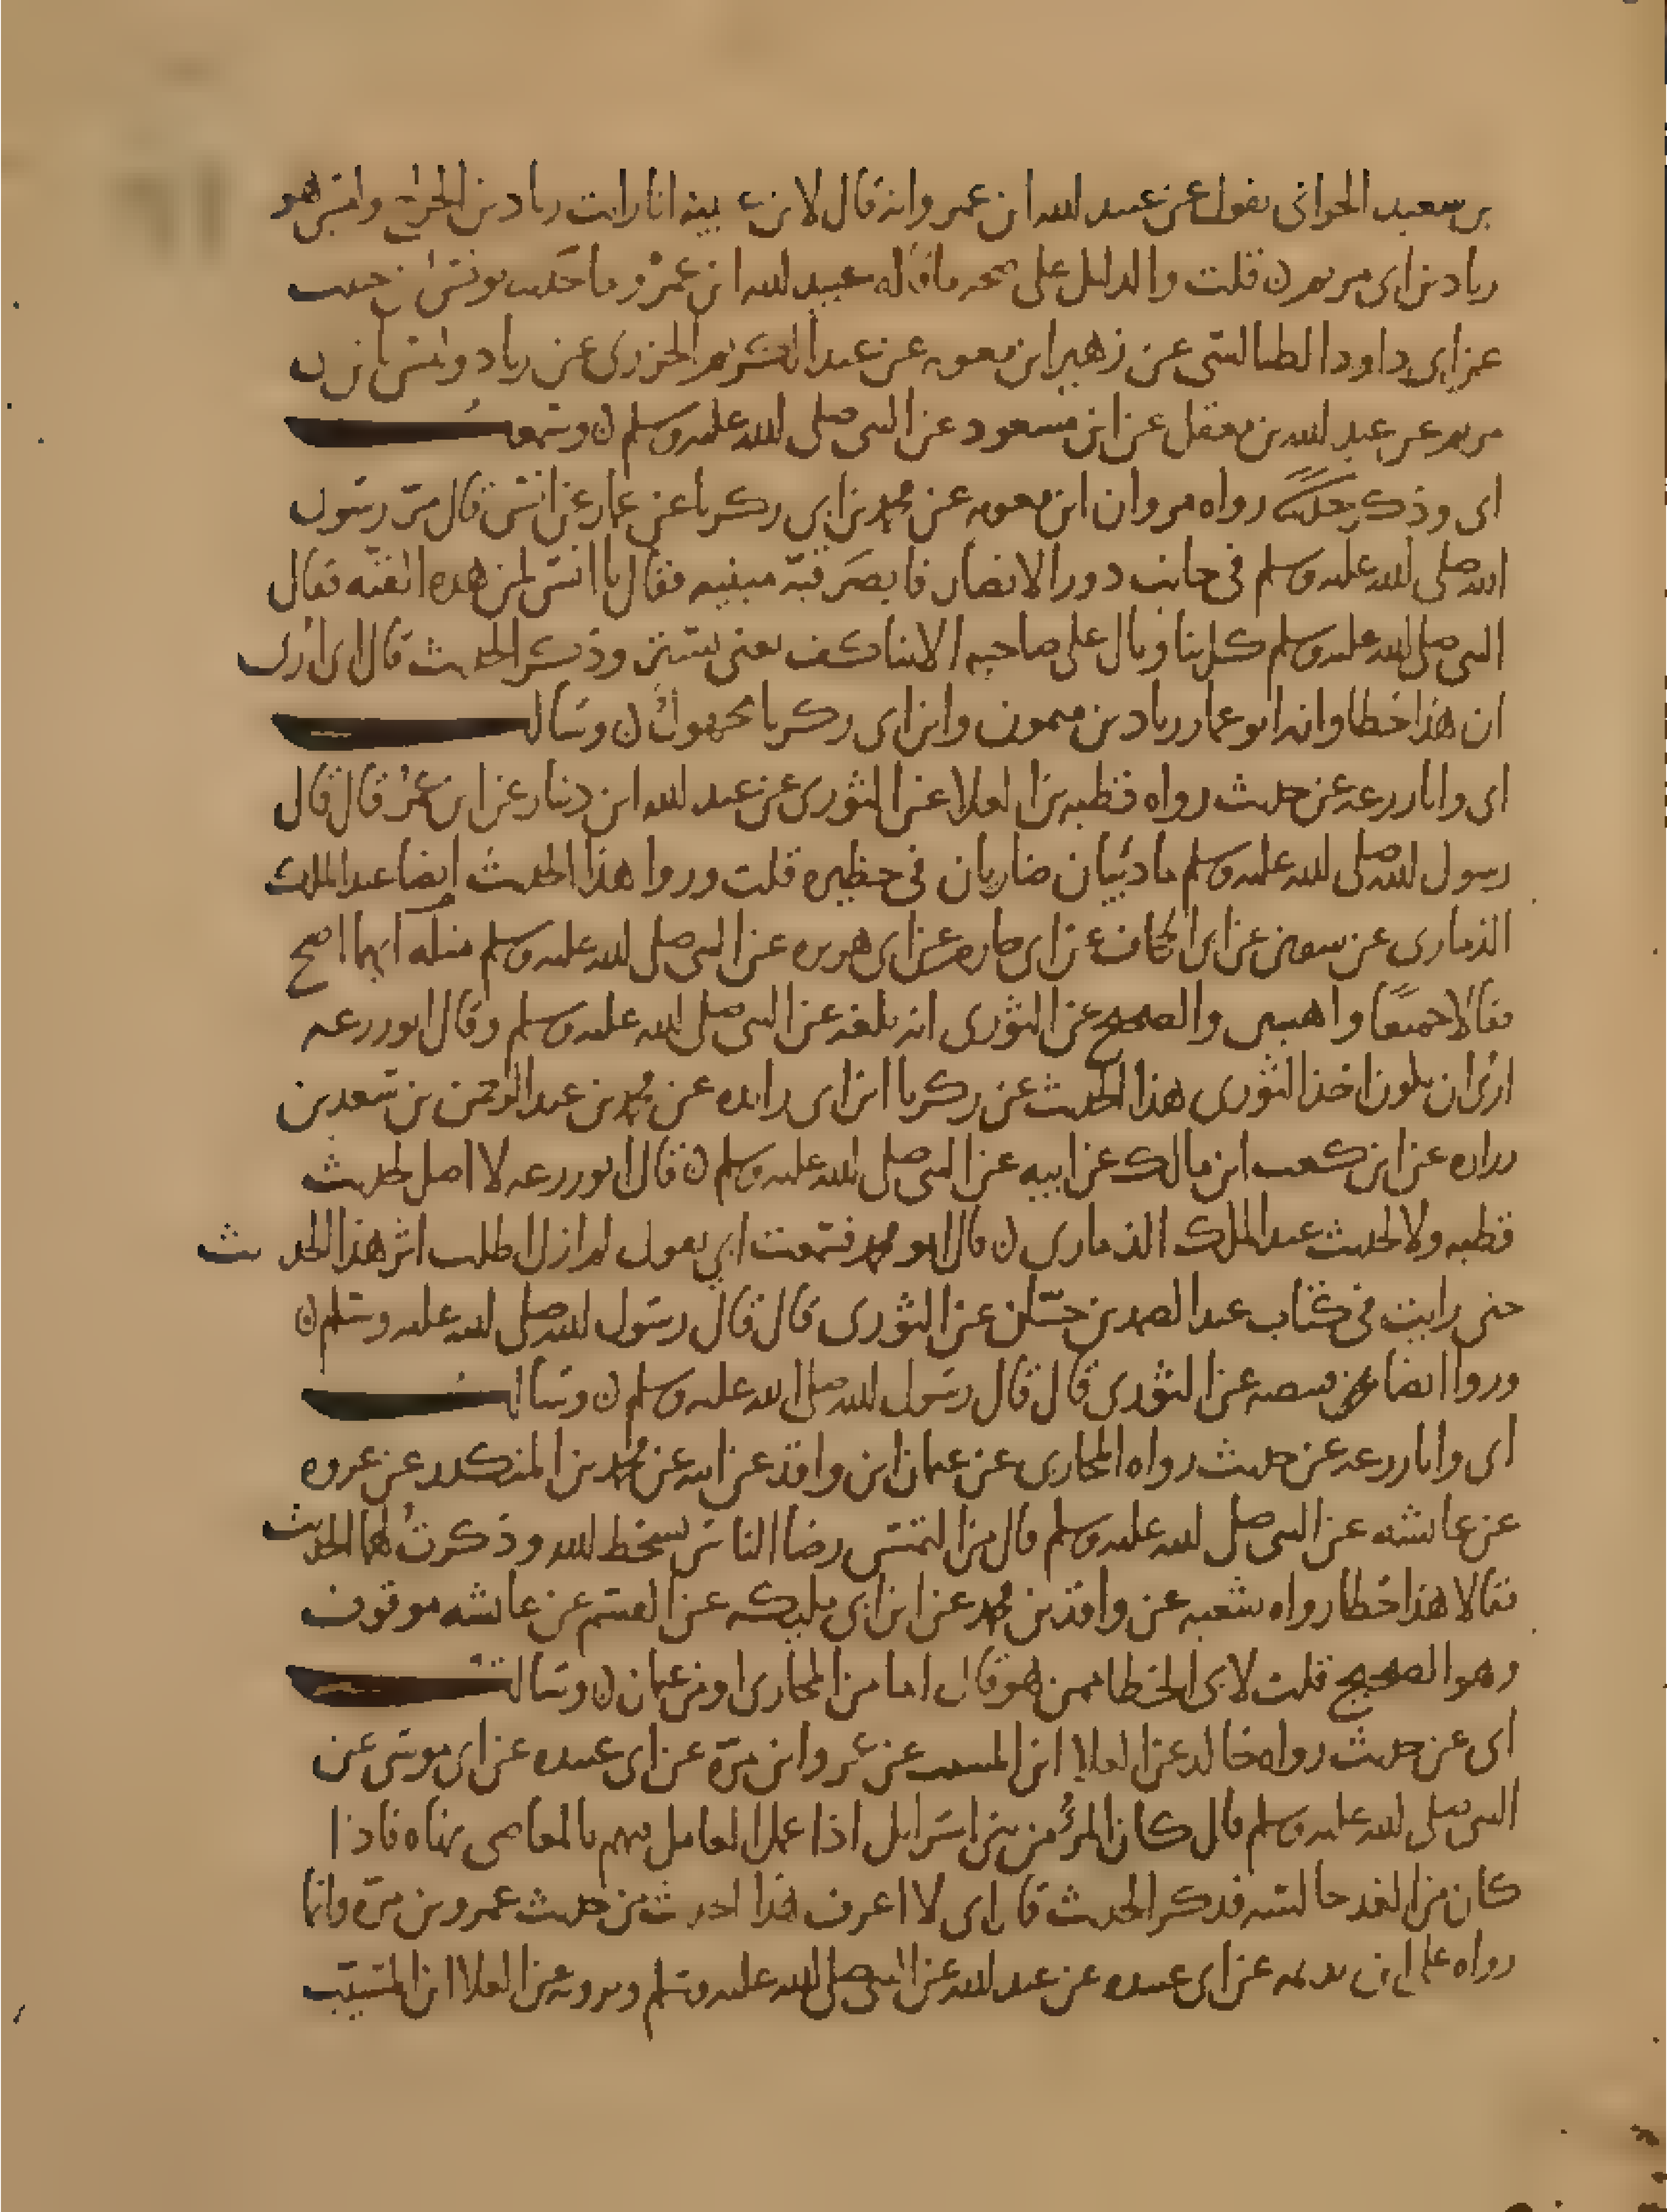 بن سعيد الحراني يقول عن عبيد الله ابن عمرو انه قال لابن عيينه انا رايت زياد بن الجراح وليس هو
زياد بن ابي مريم ن قلت والدليل على صحه ما قاله عبيد الله ابن عمرو ما حدثنا يونس بن حبيب
عن ابي داود الطيالسي عن زهير ابن معويه عن عبد الكريم الجزري عن زياد وليس بابن ابي
مريم عن عبد الله بن معقل عن ابن مسعود عن النبي صلى الله عليه وسلم ن وسمعت
ابي وذكر حديثا رواه مروان ابن معويه عن محمد بن ابي زكريا عن عمار عن انس قال مر رسول
الله صلى الله عليه وسلم في جانب دور الانصار فابصر قبة مبنيه فقال يا انس لمن هذه القبه فقال
النبي صلى الله عليه وسلم كل بنا وبال على صاحبه الا بنا كنف يعني يستتر وذكر الحديث قال ابي ارى
ان هذا خطا وانه ابو عمار زياد بن ميمون وابن ابي زكريا مجهول ن وسالت
ابي وابا زرعه عن حديث رواه قطبه بن العلا عن الثوري عن عبد الله ابن دينار عن ابن عمر قال قال
رسول الله صلى الله عليه وسلم ما ذئبان ضاريان في حظيره قلت وروا هذا الحديث ايضا عبد الملك
الذماري عن سفين عن ابي الجحاف عن ابي حازم عن ابي هريره عن النبي صلى الله عليه وسلم مثله ايهما اصح
فقالا جميعا واهيين والصحيح عن الثوري انه بلغه عن النبي صلى الله عليه وسلم وقال ابو زرعه
ارى ان يكون اخذ الثوري هذا الحديث عن زكريا ابن ابي زايده عن محمد بن عبد الرحمن بن سعد بن
زراره عن ابن كعب ابن مالك عن ابيه عن النبي صلى الله عليه وسلم ن قال ابو زرعه لا اصل لحديث
قطبه ولا لحديث عبد الملك الذماري ن قال ابو محمد فسمعت ابي يقول لم ازل اطلب اثر هذا الحديث
حتى رايت في كتاب عبد الصمد بن حسان عن الثوري قال قال رسول الله صلى الله عليه وسلم ن
وروا ايضا عن قبيصه عن الثوري قال قال رسول الله صلى الله عليه وسلم ن وسالت
ابي وابا زرعه عن حديث رواه المحاربي عن عثمان ابن واقد عن ابيه عن محمد بن المنكدر عن عروه
عن عايشه عن النبي صلى الله عليه وسلم قال من التمس رضا الناس بسخط الله وذكرت لهما الحديث
فقالا هذا خطا رواه شعبه عن واقد بن محمد عن ابن ابي مليكه عن القسم عن عايشه موقوف
وهو الصحيح قلت لابي الخطا ممن هو قال اما من المحاربي او من عثمان ن وسالت
ابي عن حديث رواه خالد عن العلا ابن المسيب عن عمرو ابن مرة عن ابي عبيده عن ابي موسى عن
النبي صلى الله عليه وسلم قال كان المرؤ من بني اسرايل اذا عمل العامل منهم بالمعاصي نهاه فاذا
كان من الغد جالسه فذكر الحديث قال ابي لا اعرف هذا الحديث من حديث عمرو بن مرة وانما
رواه علي ابن بذيمه عن ابي عبيده عن عبد الله عن النبي صلى الله عليه وسلم ويرويه عن العلا ابن المسيب